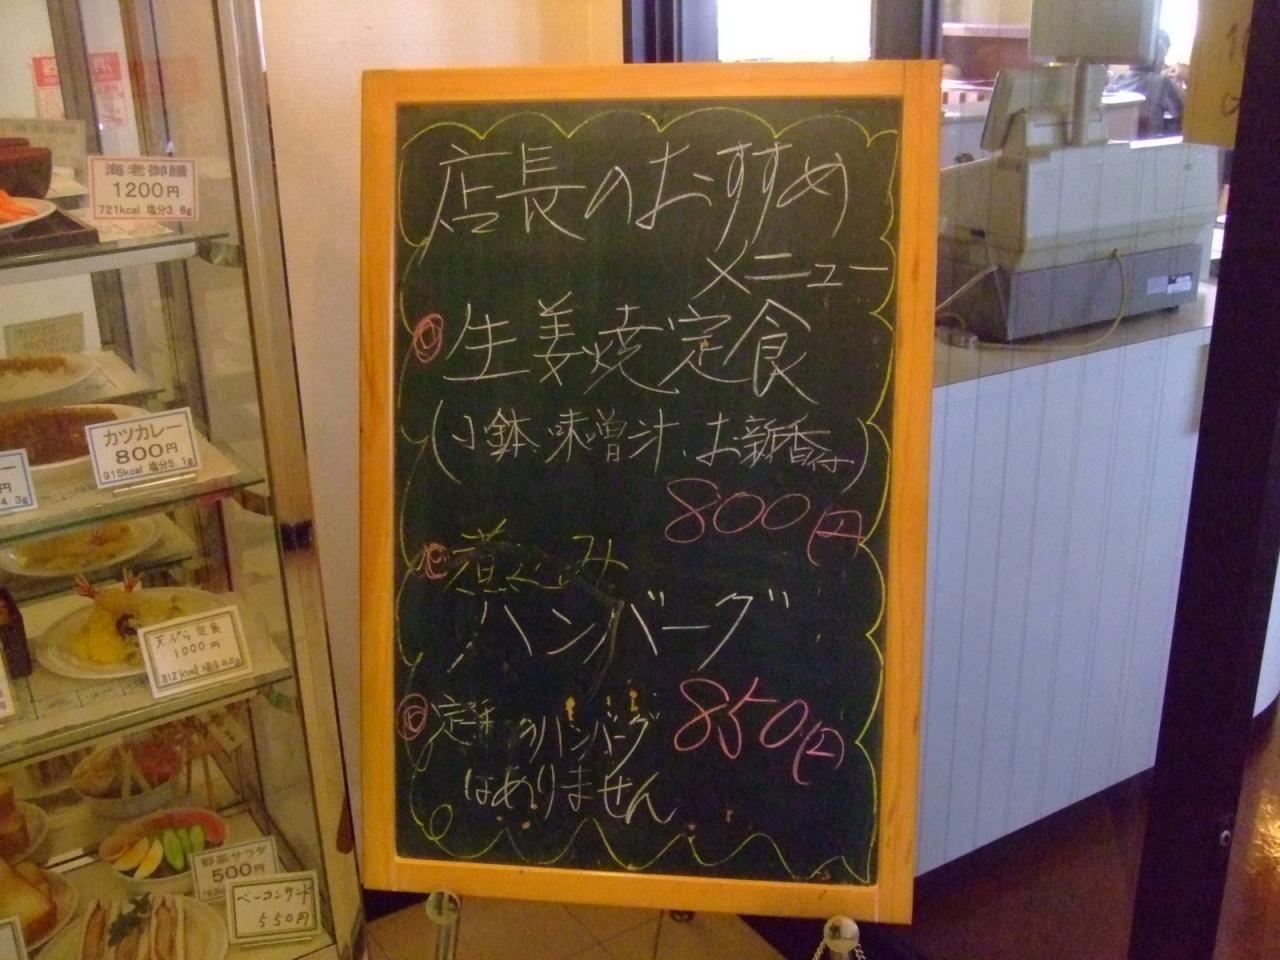 店長のおすすめ
メニュー
生姜焼定食
(小鉢、味噌汁、お新香付)
800円
煮こみ
ハンバーグ
850円
のハンバーグ
はありません
海老御膳
1200円
721kcal 塩分3.8g
カツカレー
800円
915kcal 塩分5.1g
天ぷら定食
1000円
812kcal 塩分4.0g
野菜サラダ
500円
ベーコンサンド
550円